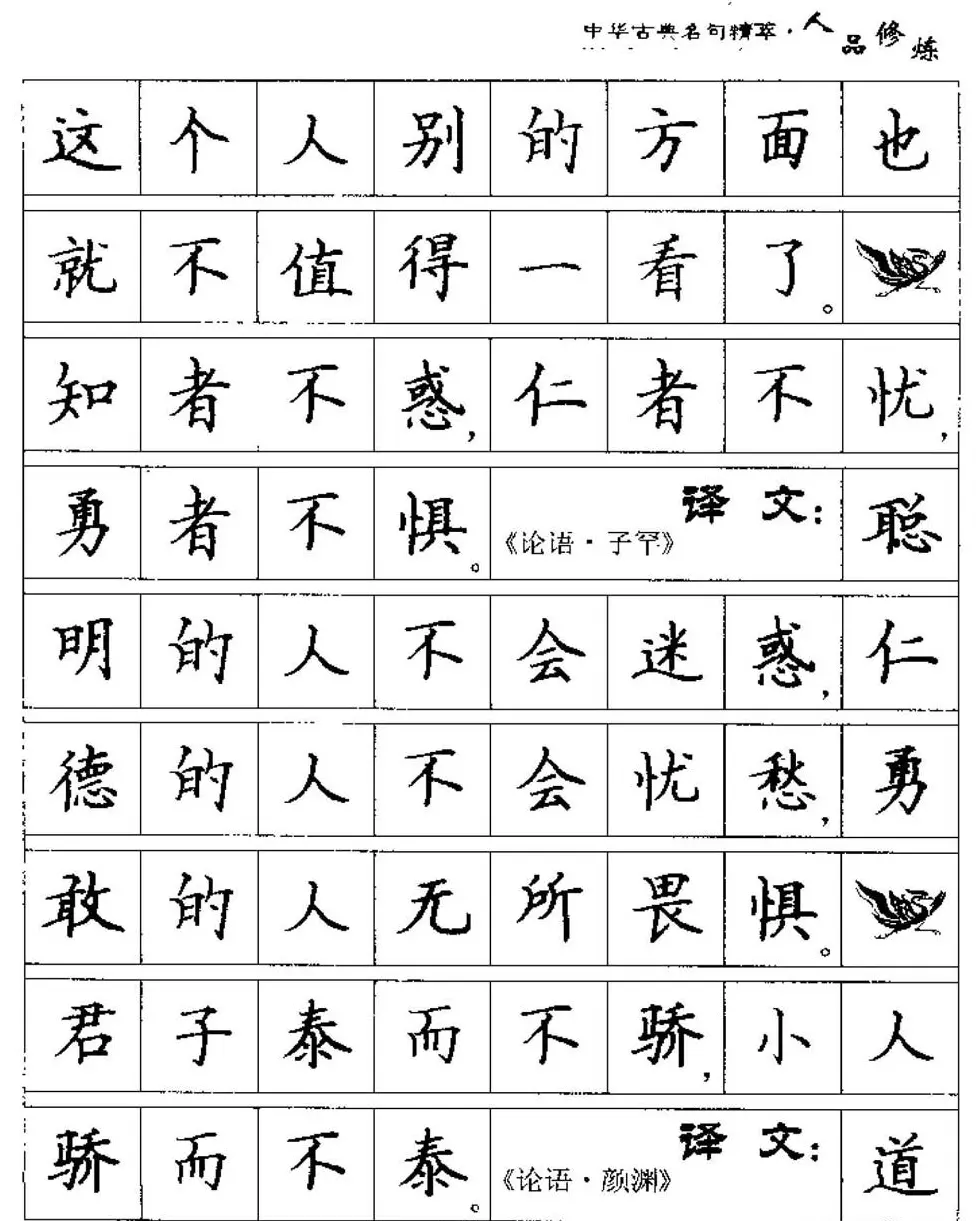 中华古典名句精萃·人品修炼
这个人别的方面也
就不值得一看了。
知者不惑,仁者不忧,
勇者不惧。《论语·子罕》译文:聪
明的人不会迷惑,仁
德的人不会忧愁,勇
敢的人无所畏惧。
君子泰而不骄,小人
骄而不泰。《论语·颜渊》译文:道